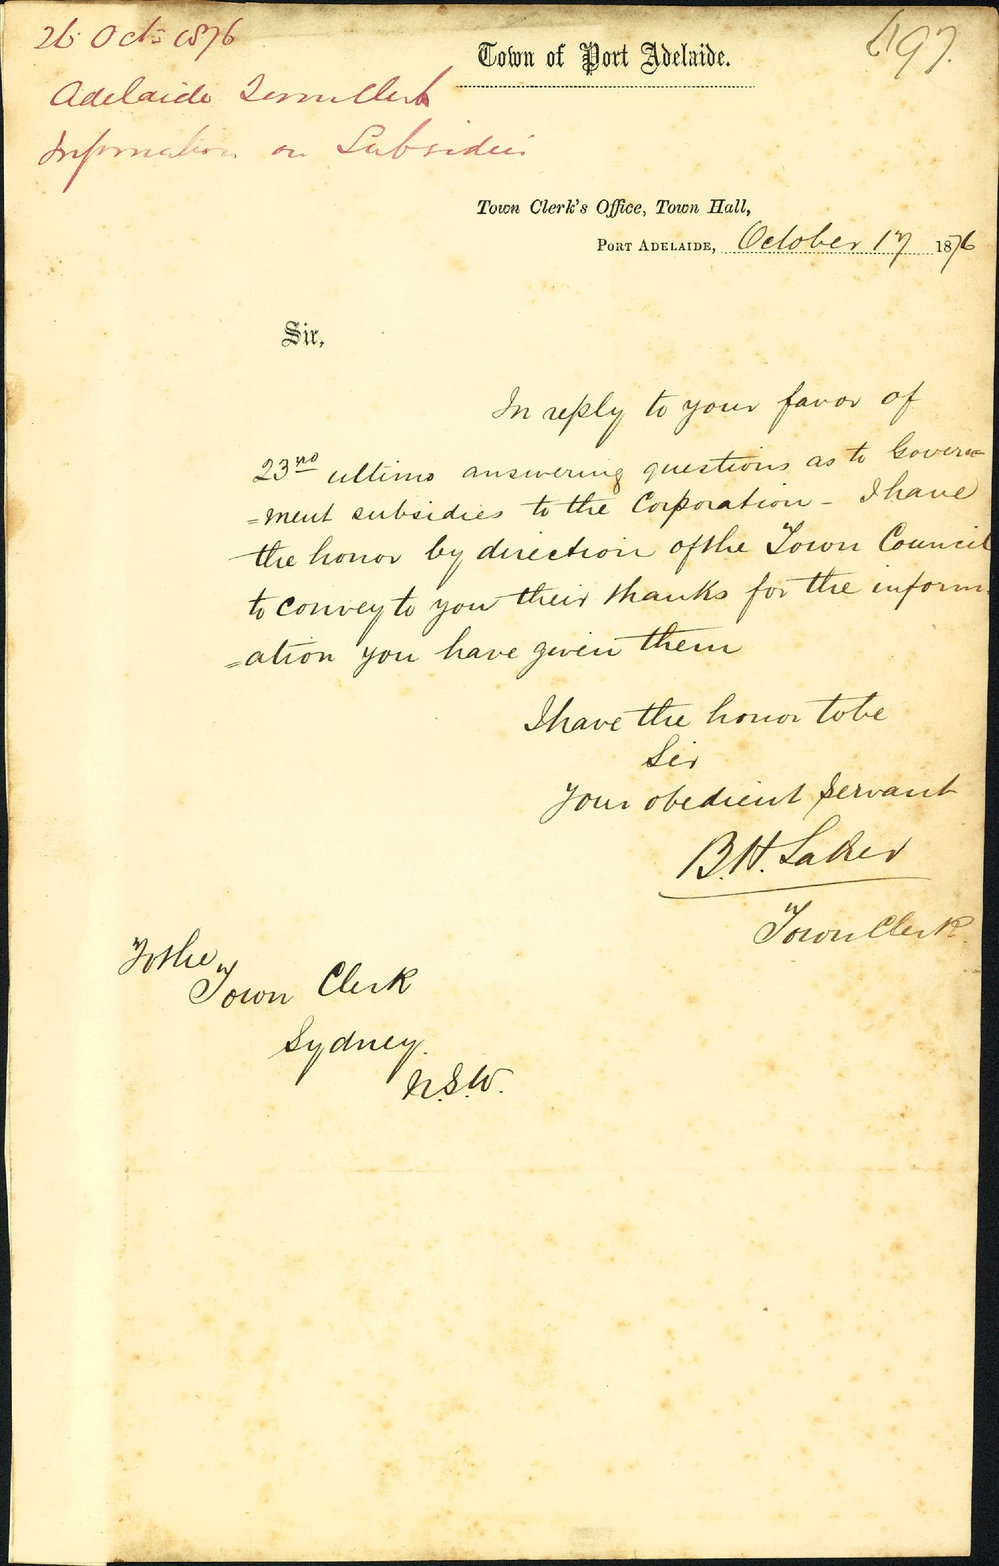 26 Oct 1876
Adelaide Town Clerk
Information on Subsidies
697.
Town of Port Adelaide.
Town Clerk's Office, Town Hall,
Port Adelaide, October 17 1876
Sir,
In reply to your favor of
23rd ultimo answering questions as to Govern=
=ment subsidies to the Corporation - I have
the honor by direction of the Town Council
to convey to you their thanks for the inform
=ation you have given them
I have the honor to be
Sir
Your obedient Servant
B.H. Laker
Town Clerk
To the
Town Clerk
Sydney.
N.S.W.